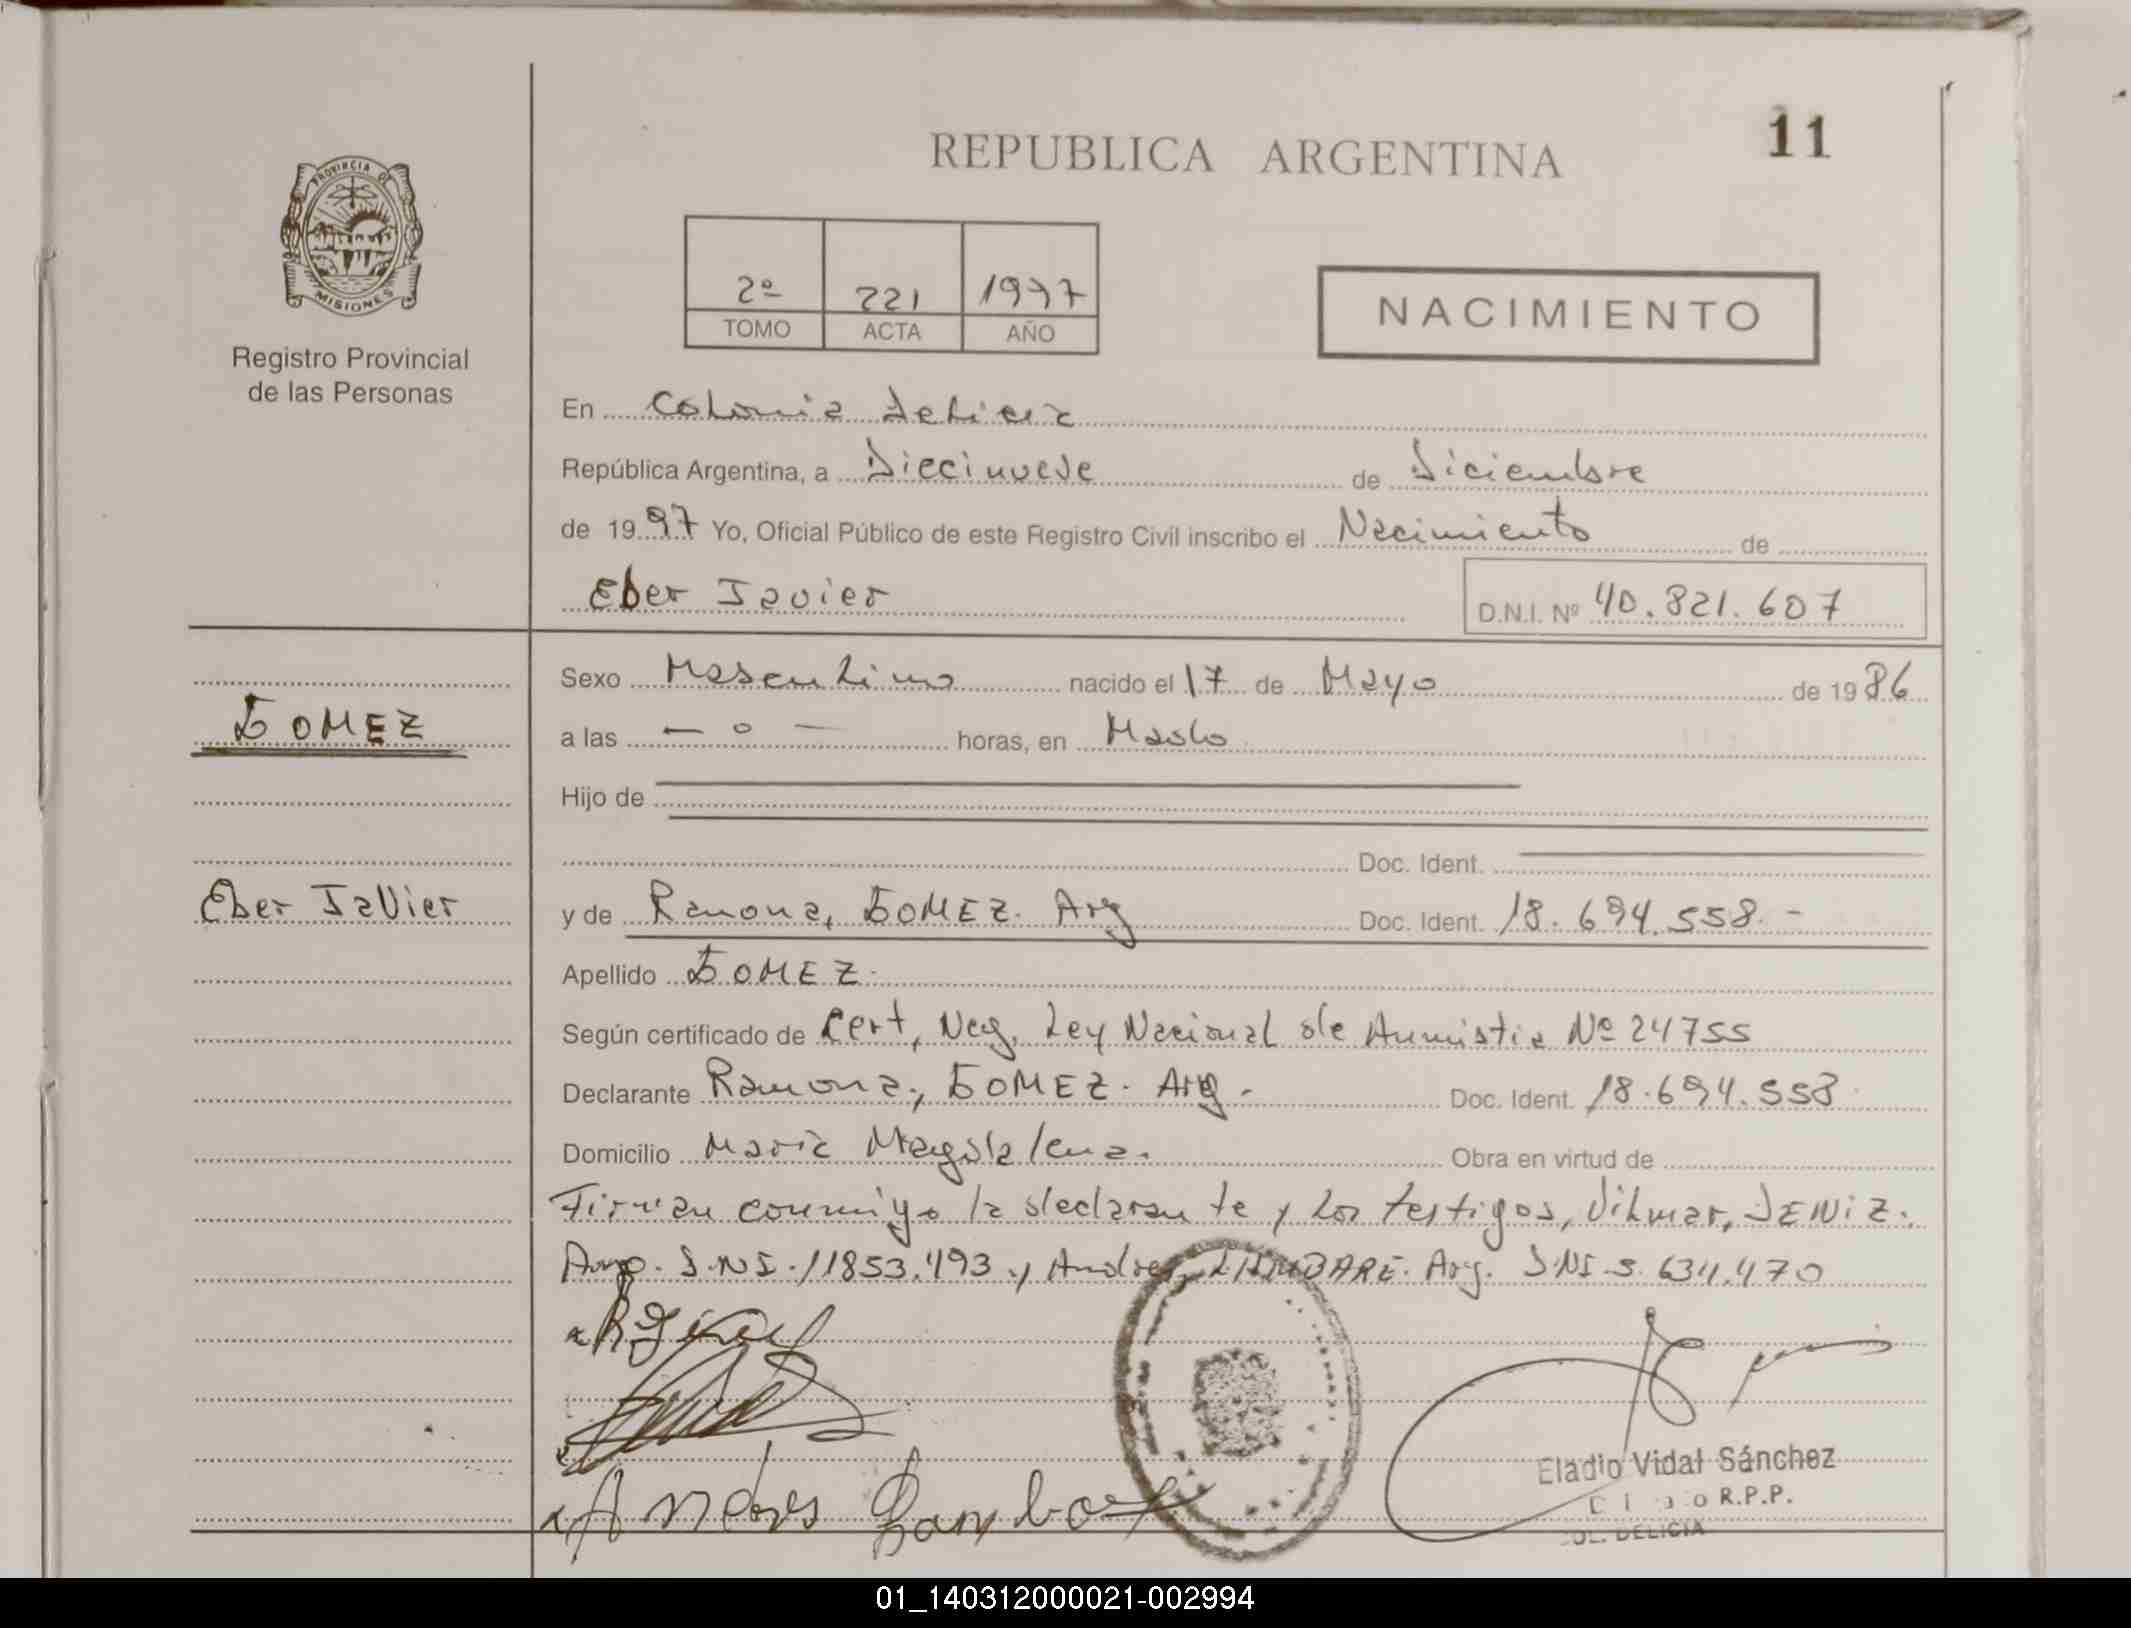 REPUBLICA ARGENTINA
11
PROVINCIA DE
MISIONES
Registro Provincial
de las Personas
2º 221 1997
TOMO ACTA AÑO
NACIMIENTO
En Colonia Delicia
República Argentina, a Diecinueve de Diciembre
de 1997 Yo, Oficial Público de este Registro Civil inscribo el Nacimiento de
Eber Javier D.N.I. Nº 40.821.607
Sexo Masculino nacido el 17 de Mayo de 1986
GOMEZ
a las — o — horas, en
Hijo de
Doc. Ident.
Eber JaVier
y de Ramona, GOMEZ. Arg Doc. Ident. 18.694.558.-
Apellido GOMEZ.
Según certificado de Cert, Neg, Ley Nacional de Amnistia Nº 24755
Declarante Ramona, GOMEZ. Arg. Doc. Ident. 18.694.558
Domicilio Maria Magdalena. Obra en virtud de
Firman conmigo la declarante y los testigos, Vilmar, DENIZ.
D.N.I. 11853.493 y Andres, Arg. DNI 5.634.470
Andres
Eladio Vidal Sánchez
R.P.P.
COL. DELICIA
01_140312000021-002994